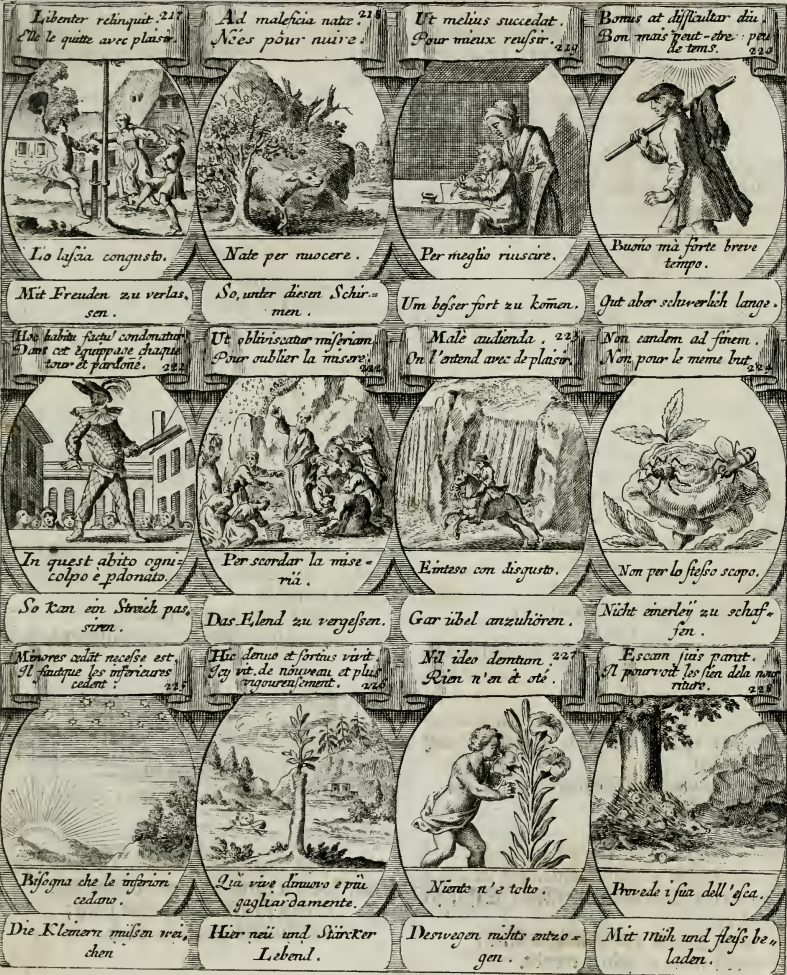 Libenter relinquit. 217
Elle le quitte avec plaisir.
Lo lascia congusto.
Mit Freuden zu verlas,
sen.
Ad maleficia natæ. 218
Nées pour nuire.
Nate per nuocere.
So, unter diesen Schir=
men.
Ut melius succedat.
Pour mieux reussir. 219
Per meglio riuscire.
Um beſser fort zu kom̄en.
Bonus at difficultar diu
Bon mais peut-etre peu
de tems. 220
Buono mà forte breve
tempo.
Gut aber schwerlich lange.
Hoc habitu factu! condonatur
Dans cet équippage chaque
tour et pardoné. 221
In quest abito ogni
colpo è pdonato.
So kan ein Streich pas,
siren.
Ut obliviscatur miseriam
Pour oublier la misere. 222
Per scordar la mise-
riá.
Das Elend zu vergeſsen.
Malè audienda. 223
On l'entend avec de plaisir.
E inteso con disgusto.
Gar übel anzuhören.
Non eandem ad finem.
Non pour le meme but. 224
Non per lo ſteſso scopo.
Nicht einerley zu schaf=
fen.
Minores cedãt neceſse est.
Il fautque les inferieures
cedent: 225
Biſogna che le inferiori
cedano.
Die Kleinern müſsen wei,
chen
Hic denuo et fortius vivit.
Icy vit de nouveau et plus
vigoureuſement. 226
Quà vive dinuovo e più
gagliardamente.
Hier neü und Stärcker
Lebend.
Nil ideo demtum. 227
Rien n'en èt oté.
Niente n'e tolto.
Deswegen nichts entzo=
gen.
Escam suis parat.
Il pourvoit les sien dela nour
riture. 228
Provede i ſua dell'eſca.
Mit Müh und fleiſs be=
laden.